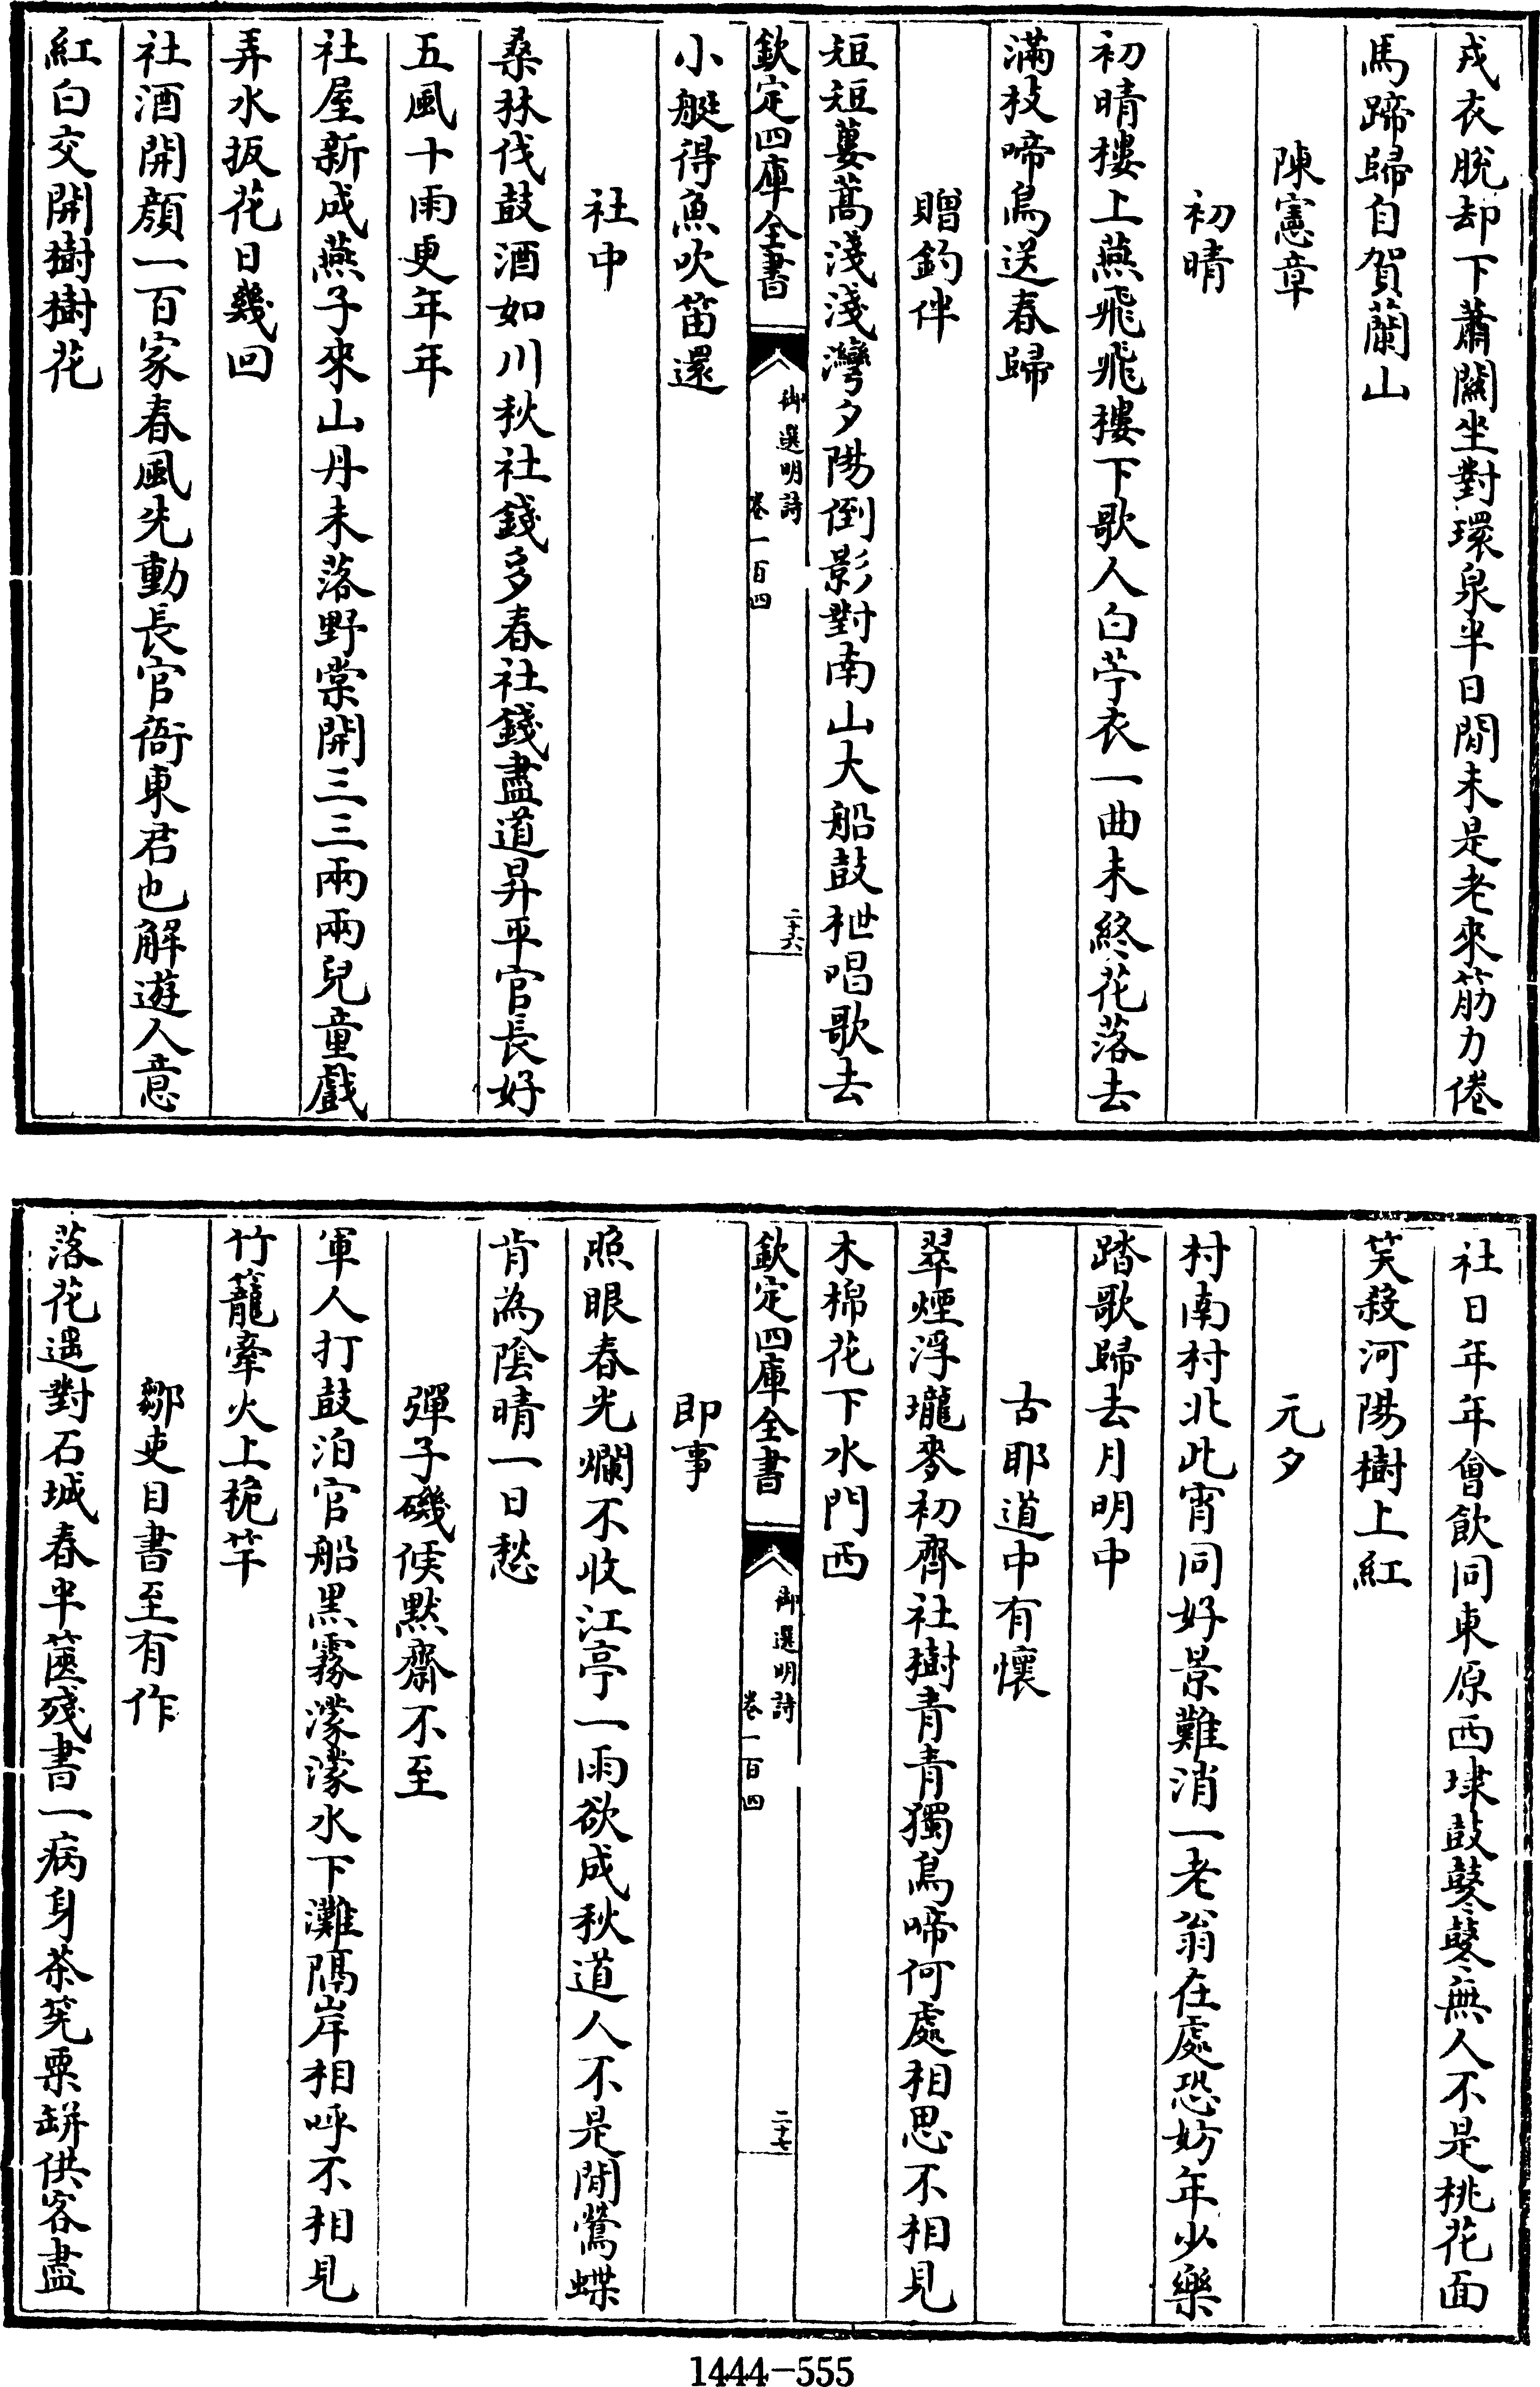 戎衣脫却下蕭關坐對環泉半日閒未是老來筋力倦
馬蹄歸自賀蘭山
陳憲章
初晴
初晴樓上燕飛飛樓下歌人白苧衣一曲未終花落去
滿枝啼鳥送春歸
贈釣伴
短短蔞蒿淺淺灣夕陽倒影對南山大船鼓枻唱歌去
欽定四庫全書
御選明詩
卷一百四
二十六
小艇得魚吹笛還
社中
桑林伐鼓酒如川秋社錢多春社錢盡道昇平官長好
五風十雨更年年
社屋新成燕子來山丹未落野棠開三三兩兩兒童戲
弄水扳花日幾回
社酒開顏一百家春風先動長官衙東君也解遊人意
紅白交開樹樹花
社日年年會飲同東原西埭鼓鼕鼕無人不是桃花面
笑殺河陽樹上紅
元夕
村南村北此宵同好景難消一老翁在處恐妨年少樂
踏歌歸去月明中
古耶道中有懷
翠煙浮瓏麥初齊社樹青青獨鳥啼何處相思不相見
木棉花下水門西
欽定四庫全書
御選明詩
卷一百四
二十七
即事
照眼春光爛不收江亭一雨欲成秋道人不是閒鶯蝶
肯為陰晴一日愁
彈子磯候默齋不至
軍人打鼓泊官船黑霧濛濛水下灘隔岸相呼不相見
竹籠牽火上桅竿
鄒吏目書至有作
落花遥對石城春半篋殘書一病身茶筅粟缾供客盡
1444-555